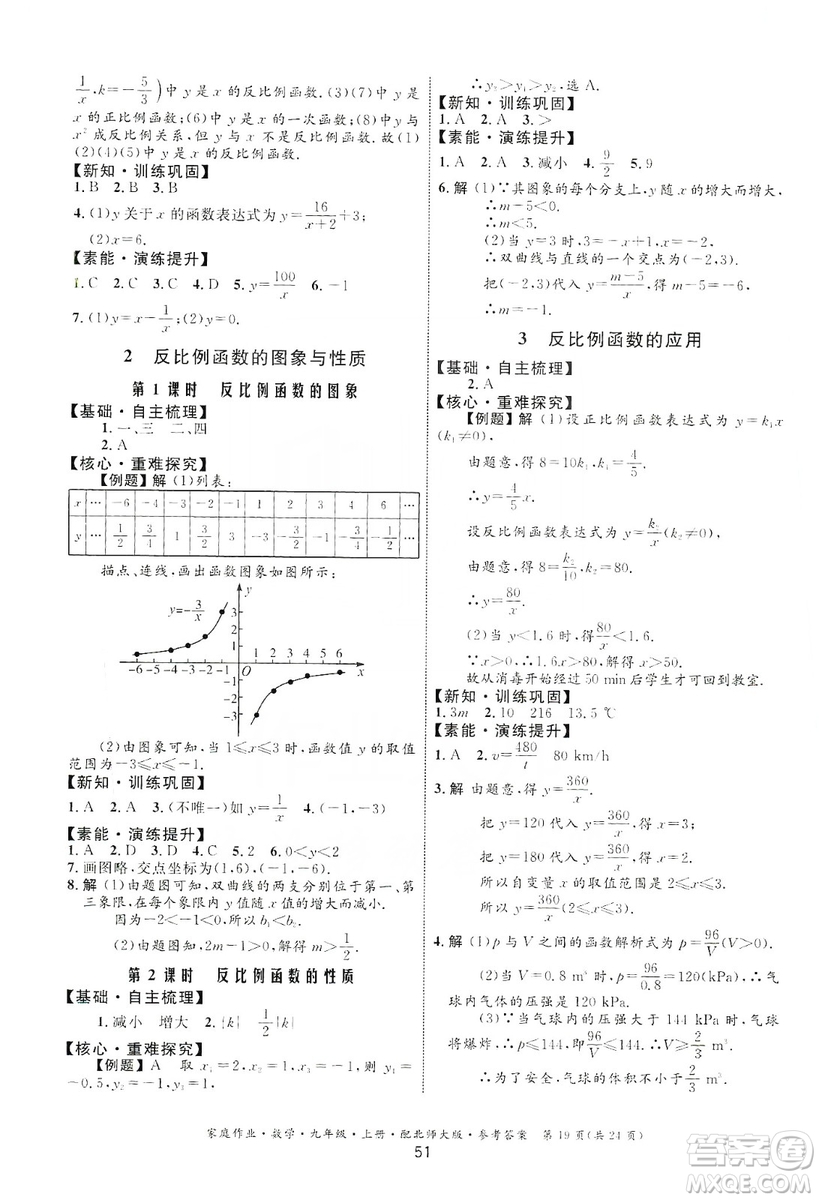 1/x,k=-5/3)中 y 是 x 的反比例函数.(3)(7)中 y 是
x 的正比例函数;(6)中 y 是 x 的一次函数;(8)中 y 与
x² 成反比例关系,但 y 与 x 不是反比例函数.故(1)
(2)(4)(5)中 y 是 x 的反比例函数.
【新知·训练巩固】
1.B 2.B 3.A
4.(1)y 关于 x 的函数表达式为 y=16/(x+2)+3;
(2)x=6.
【素能·演练提升】
1.C 2.C 3.C 4.D 5.y=100/x 6.-1
7.(1)y=x-1/x;(2)y=0.
2 反比例函数的图象与性质
第 1 课时 反比例函数的图象
【基础·自主梳理】
1.一、三 二、四
2.A
【核心·重难探究】
【例题】解 (1)列表:
x … -6 -4 -2 -1 1 2 4 6 …
y … 1/2 3/4 3/2 3 -3 -3/2 -3/4 -1/2 …
描点、连线,画出函数图象如图所示:
y=-3/x
y
3
2
1
-6 -5 -4 -3 -2 -1 O 1 2 3 4 5 6 x
-1
-2
-3
(2)由图象可知,当 1≤x≤3 时,函数值 y 的取值
范围为-3≤y≤-1.
【新知·训练巩固】
1.A 2.A 3.(不唯一)如 y=1/x 4.(-1,-3)
【素能·演练提升】
1.C 2.D 3.A 4.C 5.2 6.0<y<2
7.画图略,交点坐标为(1,6),(-1,-6).
8.解 (1)由题图可知,双曲线的两支分别位于第一、第
三象限,在每个象限内 y 值随 x 值的增大而减小.
因为-2<-1<0,所以 b₁<b₂.
(2)由题图知,2m-1>0,解得 m>1/2.
第 2 课时 反比例函数的性质
【基础·自主梳理】
1.减小 增大 2.|k| 1/2|k|
【核心·重难探究】
【例题】A 取 x₁=-2,x₂=1,x₃=3,则 y₁=
-0.5,y₂=
∴y₂>y₃>y₁,选 A.
【新知·训练巩固】
1.A 2.A 3.>
【素能·演练提升】
1.A 2.A 3.减小 4.9/2 5.9
6.解 (1)∵其图象的每个分支上,y 随 x 的增大而增大,
∴m-5<0.
∴m<5.
(2)当 y=3 时,3=-x+1,x=-2,
∴双曲线与直线的一个交点为(-2,3).
把(-2,3)代入 y=(m-5)/x,得 m-5=-6.
∴m=-1.
3 反比例函数的应用
【基础·自主梳理】
2.A
【核心·重难探究】
【例题】解 (1)设正比例函数表达式为 y=k₁x
(k₁≠0),
由题意,得 8=10k₁,k₁=4/5.
∴y=4/5x.
设反比例函数表达式为 y=k₂/x(k₂≠0),
由题意,得 8=k₂/10,k₂=80.
∴y=80/x.
(2)当 y<1.6 时,得80/x<1.6.
∵x>0,∴1.6x>80,x>50.
故从消毒开始经过 50 min 后学生才可回教室.
【新知·训练巩固】
1.3m 2.10 216 13.5 ℃
【素能·演练提升】
1.A 2.v=480/t 80 km/h
3.解 由题意,得 y=360/x,
把 y=120 代入 y=360/x,得 x=3;
把 y=180 代入 y=360/x,得 x=2,
所以自变量 x 的取值范围是 2≤x≤3,
所以 y=360/x(2≤x≤3).
4.解 (1)p 与 V 之间的函数解析式为 p=96/V(V>0).
(2)当 V=0.8 m³ 时,p=96/0.8=120(kPa),∴气
球内气体的压强是 120 kPa.
(3)∵当气球内的压强大于 144 kPa 时,气球
将爆炸,∴p≤144,∴96/V≤144,∴V≥2/3 m³.
∴为了安全起见,气球的体积应不小于2/3 m³.
家庭作业·数学·九年级·上册·配北师大版·参考答案 第 19 页(共 24 页)
51
答案圈
MXQE.COM